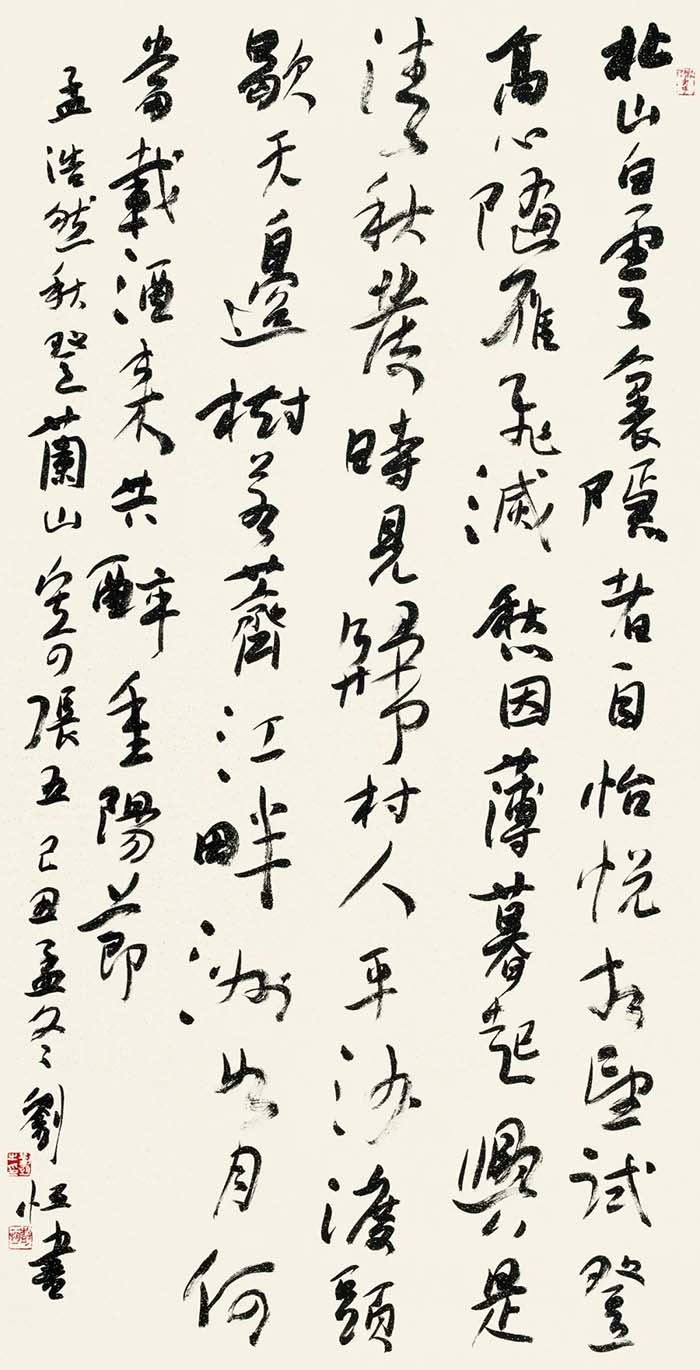 北山白雲裏隱者自怡悅相望試登
高心隨雁飛滅愁因薄暮起興是
清秋發時見歸村人平沙渡頭
歇天邊樹若薺江畔洲如月何
當載酒來共醉重陽節
孟浩然秋登蘭山寄張五己丑孟冬劉恒書